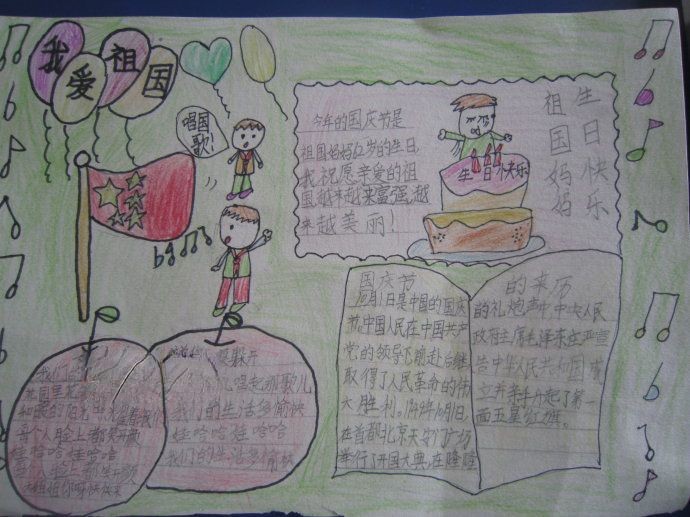 我爱祖国
唱国
歌!
今年的国庆节是
祖国妈妈62岁的生日
我祝愿亲爱的祖
国越来越来富强,越
来越美丽!
生日快乐
祖国妈妈
生日快乐
国庆节
10月1日是中国的国庆
节,中国人民在中国共产
党的领导下前赴后继
取得了人民革命的伟
大胜利。1949年10月1日,
在首都北京天安门广场
举行了开国大典,在隆隆
的来历
的礼炮声中,中央人民
政府主席毛泽东庄严宣
告中华人民共和国成
立并亲手升起了第一
面五星红旗。
我们的
祖国里
和暖的阳光
每个人脸上都笑开颜
娃哈哈娃哈哈
每个人脸上都笑开颜
大姐姐你呀快快来
唱起那歌儿
我们的生活多愉快
娃哈哈娃哈哈
我们的生活多愉快